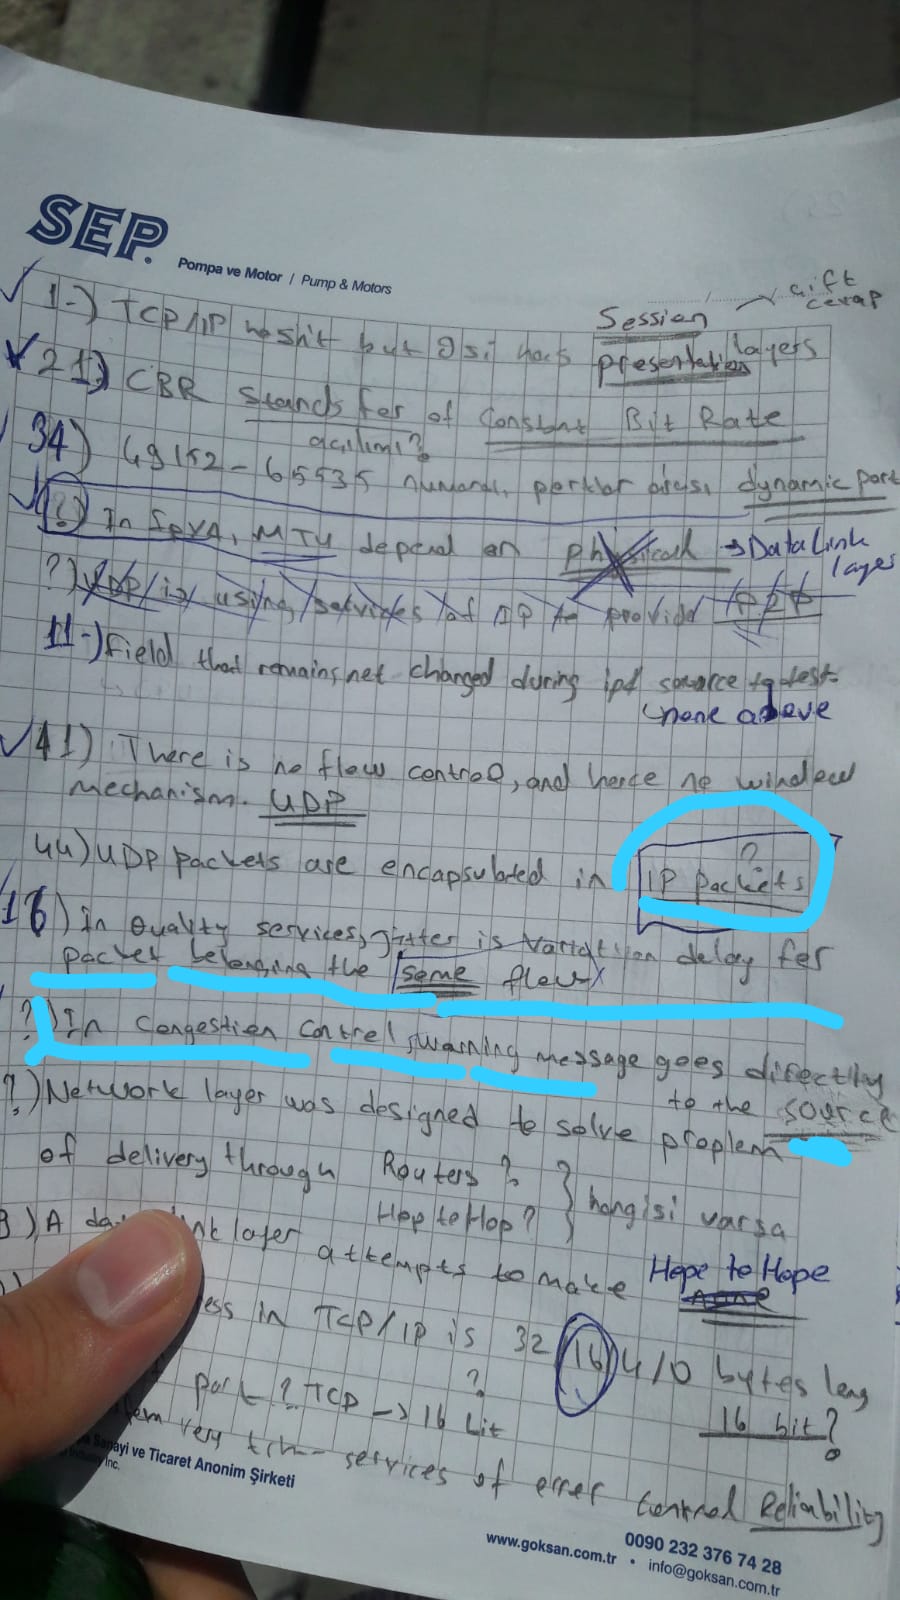 SEP.
Pompa ve Motor / Pump & Motors
çift
cevap
Session
1-) TCP/IP hasn't but Osi has presentation layers
21) CBR stands for of Constant Bit Rate
açılımı?
34) 49152-65535 numaralı portlar arası dynamic port
?) In IPV4, MTU depend on physical → DataLink
layer
?) UDP is using services of IP to provide
11-) Field that remains not changed during ipf source to dest.
none above
41) There is no flow control, and hence no window
mechanism. UDP
44) UDP packets are encapsulated in IP packets
?
16) In Quality services, jitter is variation delay for
packet belonging the same flow
?) In Congestion Control, warning message goes directly
to the source
?) Network layer was designed to solve proplem
of delivery through Routers?
Hop to Hop? } hangisi varsa
) A link layer attempts to make Hope to Hope
ess in TCP/IP is 32 16 4/0 bytes long
port? TCP → 16 bit
?
16 bit?
very services of error control Reliability
Sanayi ve Ticaret Anonim Şirketi
Inc.
www.goksan.com.tr • 0090 232 376 74 28
info@goksan.com.tr